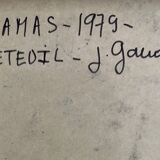 AMAS - 1979 -
ETEDIL - J. Gau